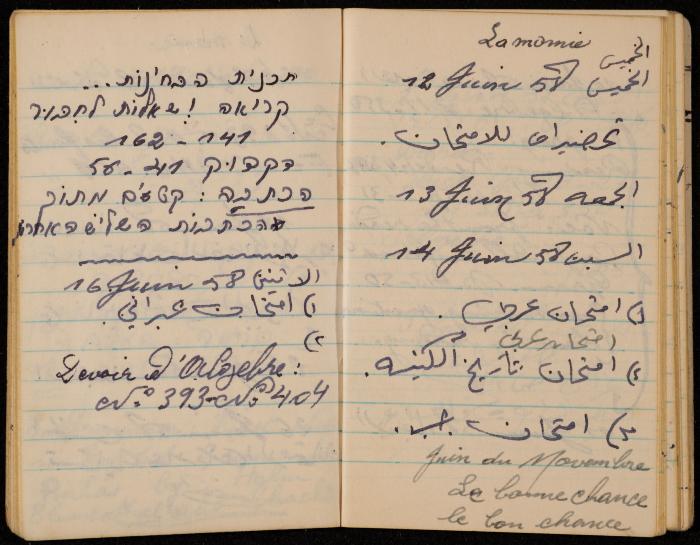 תכנית הבחינות...
קריאה ושאלות לחבור
162 - 141
דקדוק 41 - 56
הכתבה : קטעים מתוך
ההכתבות השליש האחרון
الاثنين 16 Juin 58
١) امتحان عبراني.
٢)
Devoir d'Algebre :
Nº 393 - Nº 404
La momie
الخميس
الخميس 12 Juin 58
تحضيرات للامتحان.
الجمعه 13 Juin 58
السبت 14 Juin 58
١) امتحان عربي.
امتحان عربي
٢) امتحان تاريخ
٣) امتحان
Juin du Novembre
La bonne chance
le bon chance